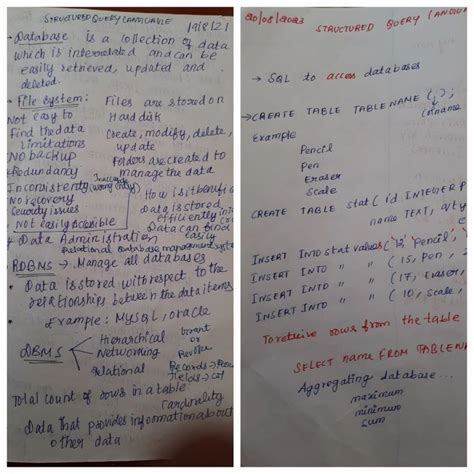 STRUCTURED QUERY LANGUAGE
19/8/21
Database is a collection of data
which is interrelated and can be
easily retrieved, updated and
deleted.
File system: Files are stored on
Not easy to Hard disk
Find the data Create, modify, delete,
Limitations update
No backup Folders are created to
Redundancy manage the data
Inconsistency
No recovery How is it
Security issues Data is stored
efficiently
Not easily accessible Data can find
easily
Data Administration
Relational Database management system
RDBMS → Manage all databases
Data is stored with respect to the
relationships between the data items
Example: MySQL, oracle
DBMS Hierarchical
Networking or
Relational
Records →
Fields →
Total count of rows in a table
Cardinality
Data that provides information about
other data
20/08/2023
STRUCTURED QUERY
→ SQL to access databases
→ CREATE TABLE TABLE NAME ( , );
Example
Pencil
Pen
Eraser
Scale
CREATE TABLE stat ( id INTEGER P
name TEXT,
INSERT INTO stat values ( '12' 'pencil', '
INSERT INTO " " ( 15, Pen ,
INSERT INTO " " ( 17, Eraser,
INSERT INTO " " ( 10, Scale,
To retuive rows from the table
SELECT name FROM TABLEN
Aggregating database...
maximum
minimum
sum